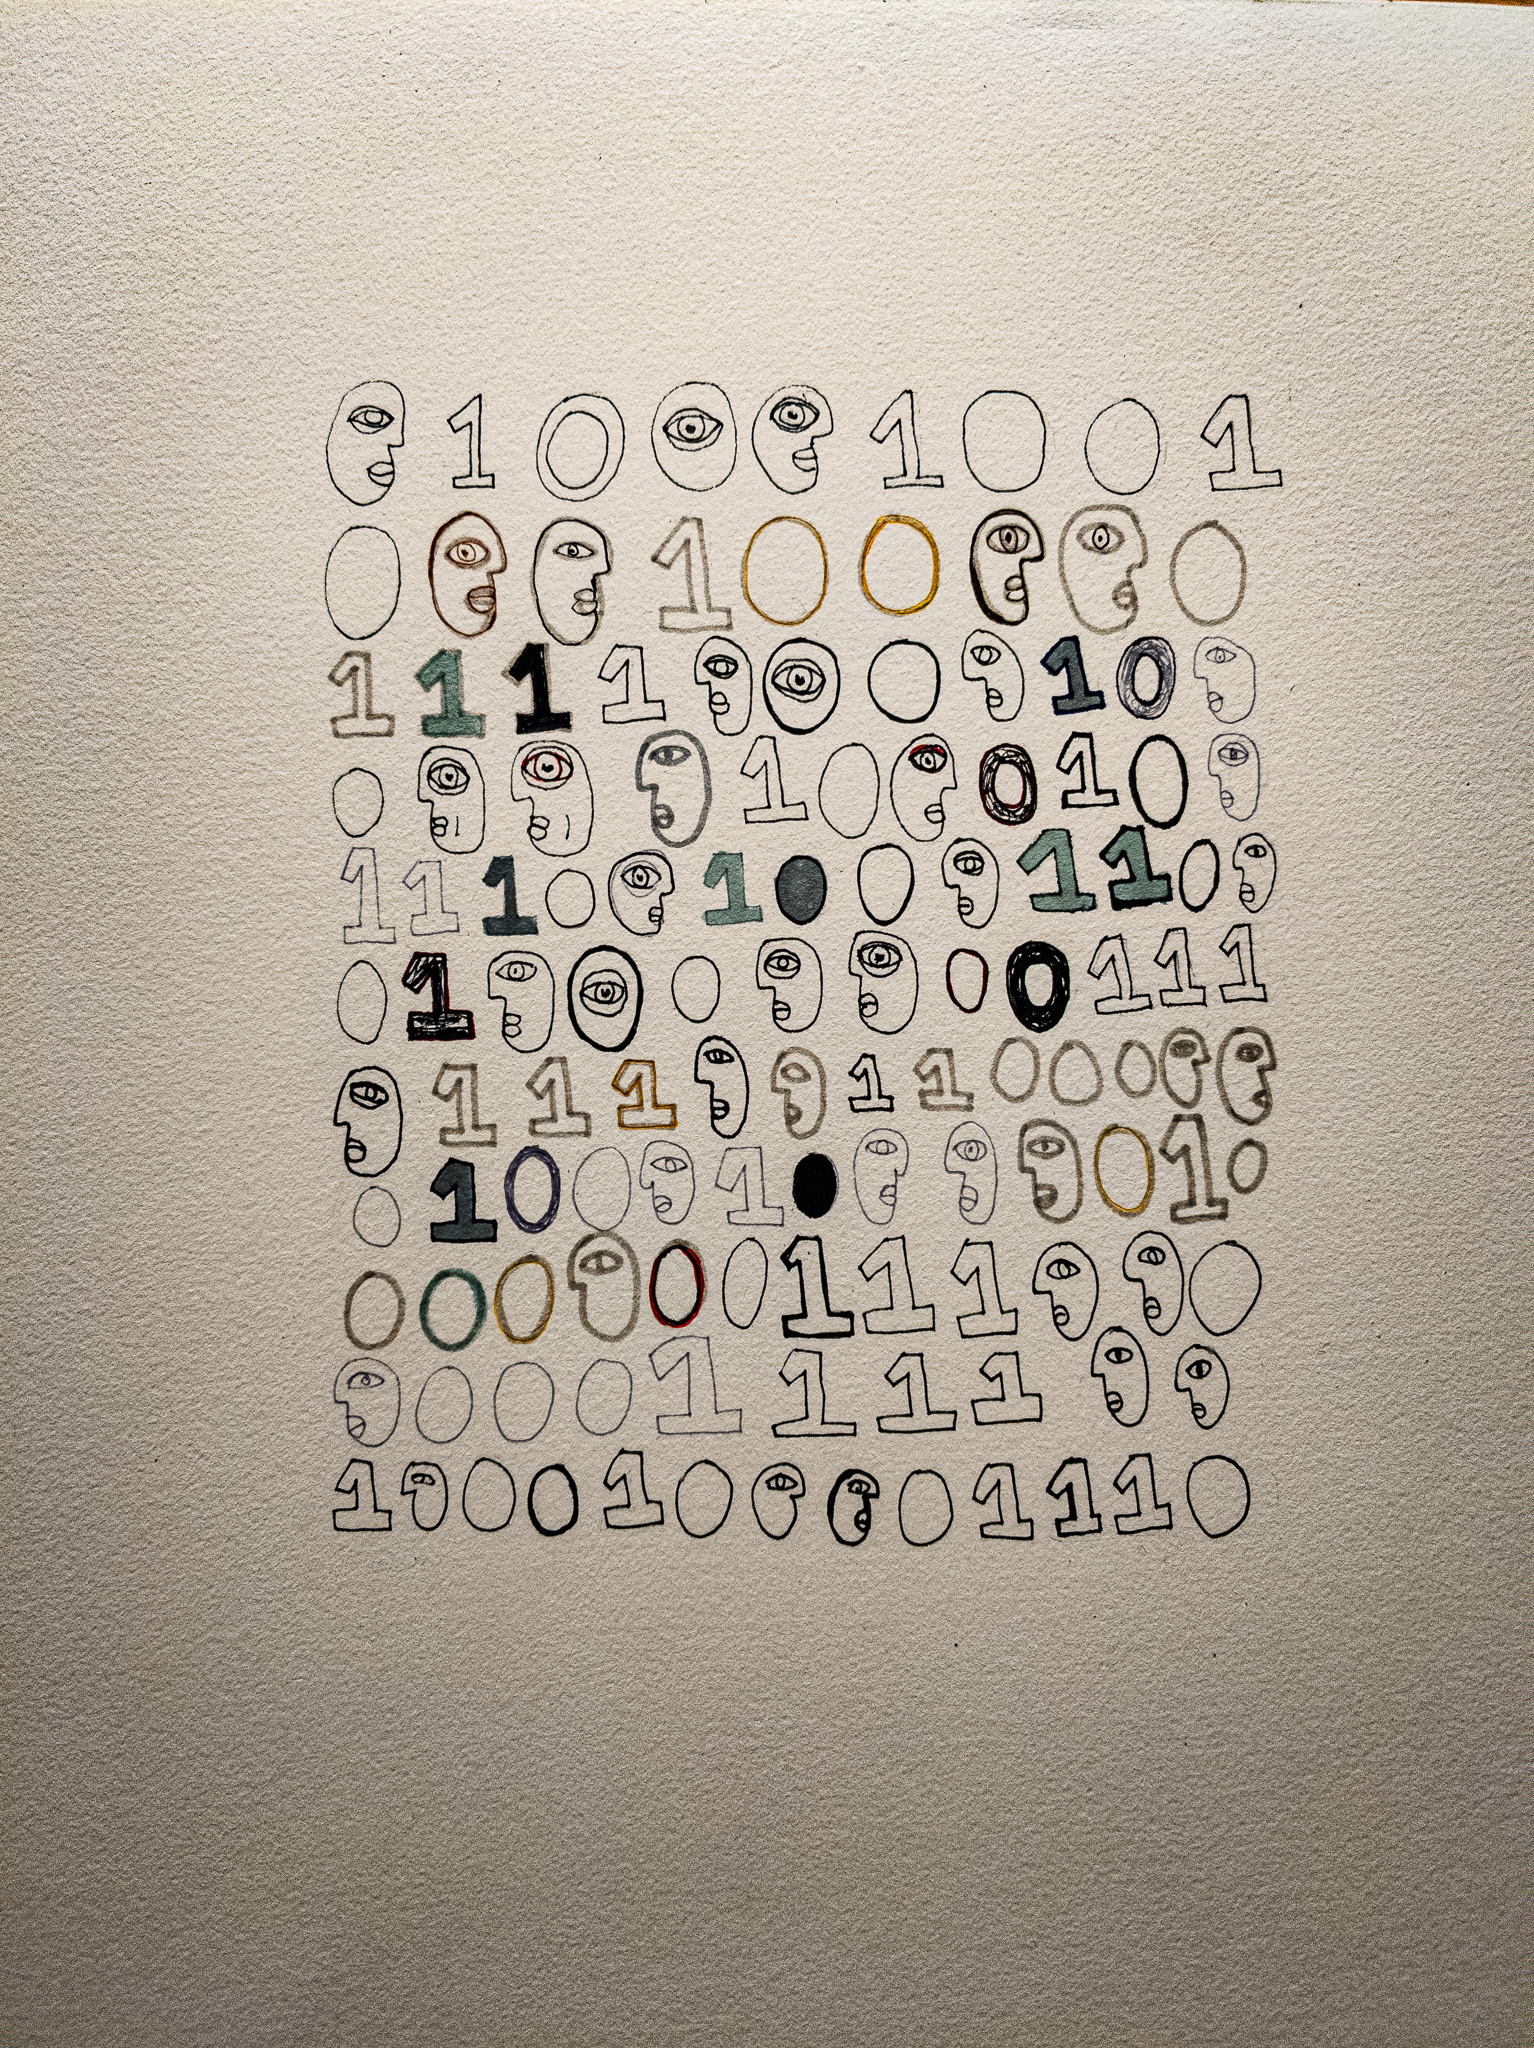 1 0 1 0 0 1
0 1 0 0 0
1 1 1 1 0 1 0
0 1 0 0 1 0
1 1 1 0 1 0 0 1 1 0
0 1 0 0 0 1 1 1
1 1 1 1 1 0 0 0
0 1 0 0 1 0 0 1 0
0 0 0 0 0 1 1 1 0
0 0 0 1 1 1 1
1 0 0 1 0 0 1 1 1 0